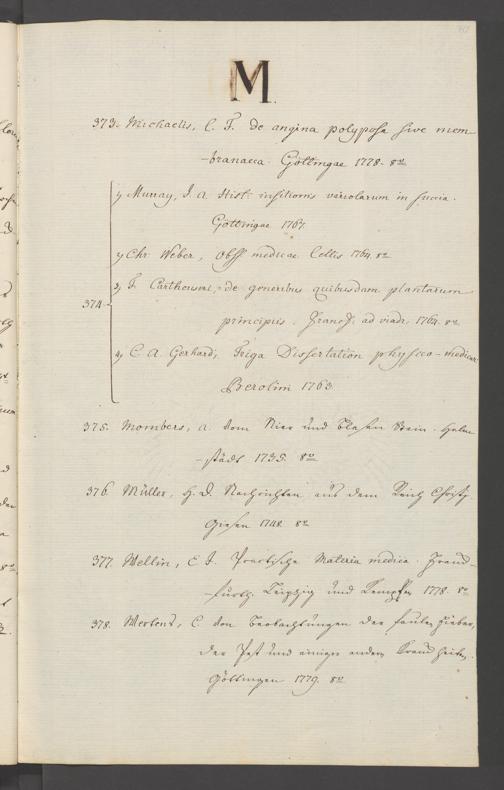 M.
373. Michaelis, C. F. de angina polyposa sive mem-
-branacea. Göttingae 1778. 8vo
1, Murray, J. A. Hist: insitionis variolarum in suecia.
Göttingae 1767.
2, Chr. Weber, Obss medicae Cellis 1764. 8vo
3, F. Cartheuseri, de generibus quibusdam plantarum
374.
principiis. Francof. ad viadr. 1764. 8vo
4, C. A. Gerhard, Triga Dissertation physico-medicar:
Berolini 1763.
375. Mombers, A. vom Nier und Blasen Stein. Helm-
-städt 1735. 8vo
376. Müller, H. D. Nachrichten aus dem Reich Christi
Giesen 1748. 8vo
377. Mellin, C. J. Practische Materia medica. Franck-
-furth Leipzig und Kempten 1778. 8vo
378. C. von Beobachtungen der faulen Fieber,
der Pest und einiger andern Kranckheiten.
Göttingen 1779. 8vo